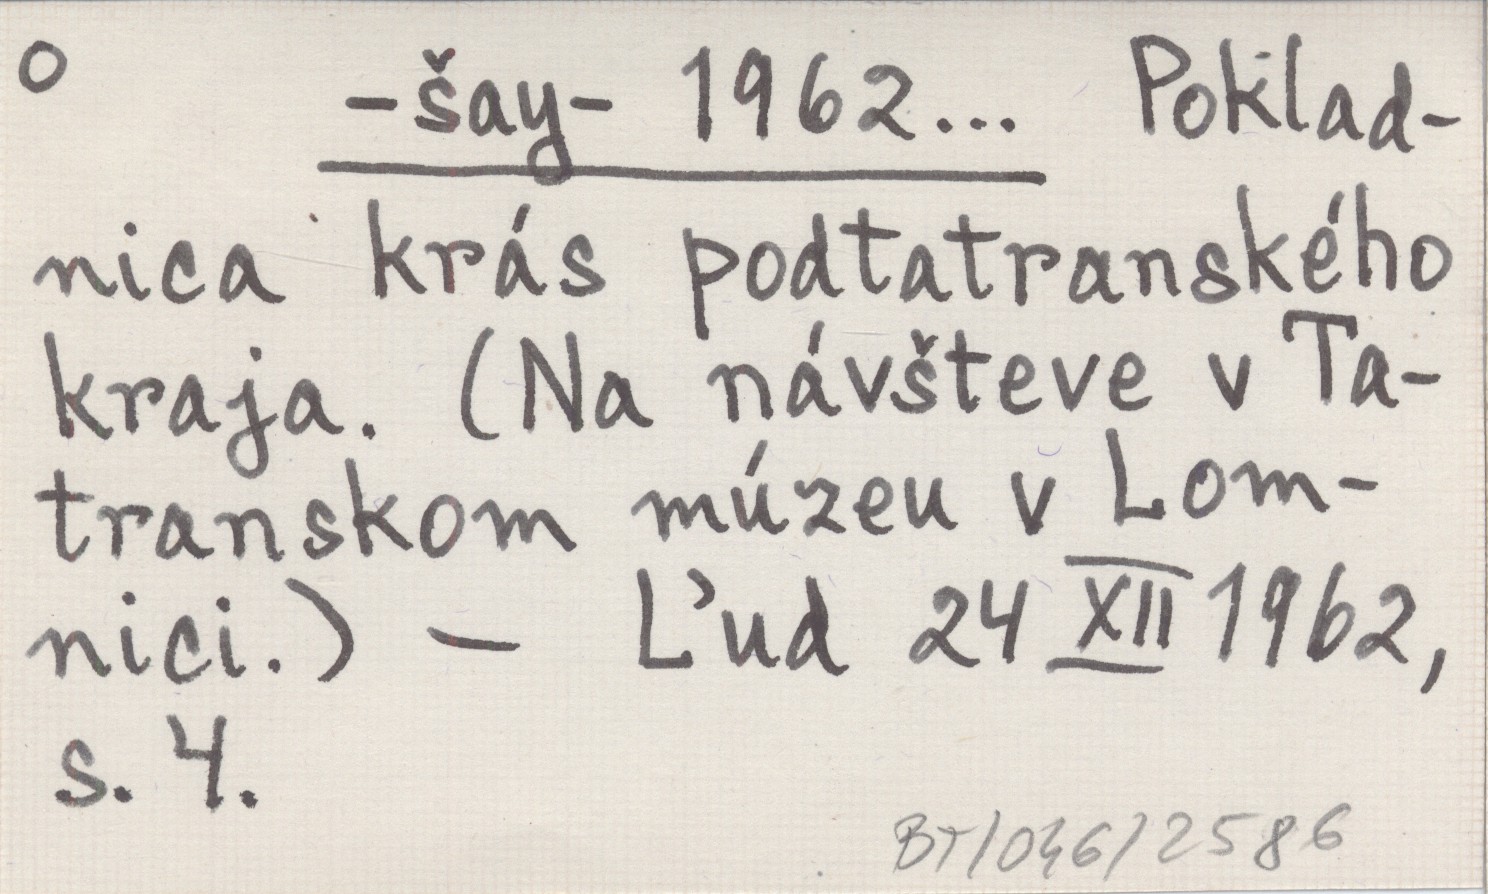 o -šay- 1962... Poklad-
nica krás podtatranského
kraja. (Na návšteve v Ta-
transkom múzeu v Lom-
nici.) — Ľud 24 XII 1962,
s. 4.
BT/046/2586